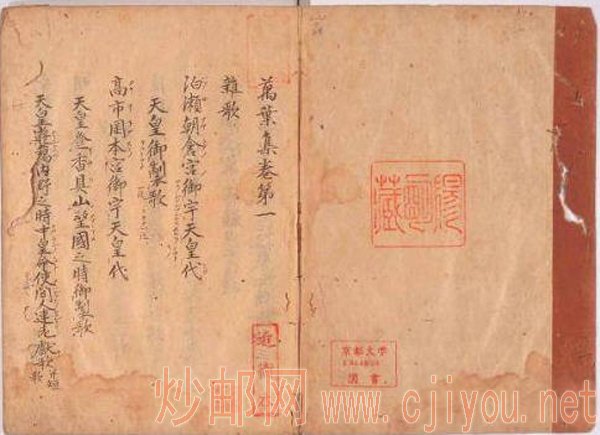 萬葉集卷第一
雜歌
泊瀬朝倉宮御宇天皇代
天皇御製歌
高市岡本宮御宇天皇代
天皇登香具山望國之時御製歌
天皇遊獵内野之時中皇命使間人連老獻歌并短歌
藏
京都大学
圖書
炒邮网
www.cjiyou.net